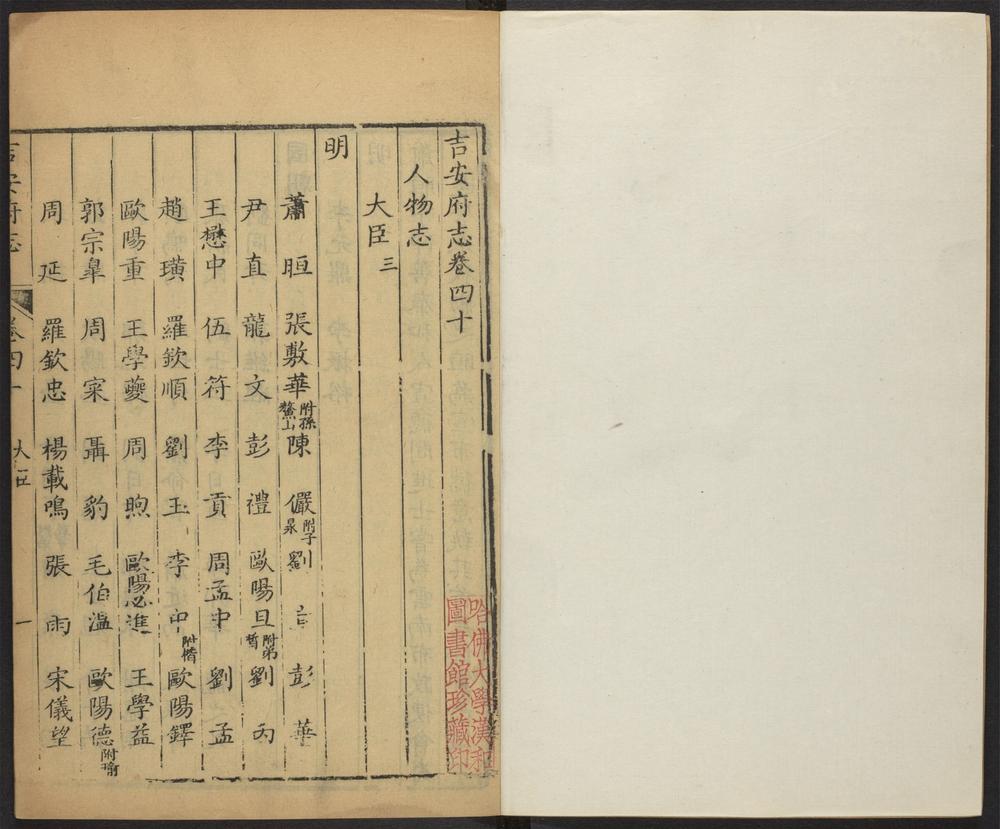 吉安府志卷四十
人物志
大臣三
明
蕭晅 張敷華附孫鰲山 陳儼附子泉 劉 彭華
尹直 龍文 彭禮 歐陽旦附弟晳 劉丙
王懋中 伍符 李貢 周孟中 劉孟
趙璜 羅欽順 劉玉 李中附楷 歐陽鐸
歐陽重 王學夔 周煦 歐陽必進 王學益
郭宗皐 周寀 聶豹 毛伯溫 歐陽德附瑜
周延 羅欽忠 楊載鳴 張雨 宋儀望
吉安府志 卷四十 大臣 一
哈佛大學漢和圖書館珍藏印